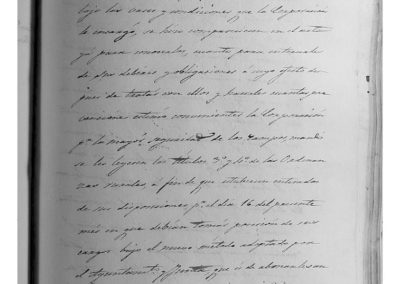 bajo las bases y condiciones que la Corporación
le convenga, se hizo comparecer en el acto
de sus deberes y obligaciones a cuyo efecto des-
pues de tratar con ellos y hacerles cuantas pre-
estimó convenientes la Corporación
pª la mayor seguridad de los campos, mandó
se les leyeran los títulos 3º y 4º de las Ordenan-
zas rurales á fin de que estubieran enterados
de sus disposiciones pª el dia 16 del presente
mes en que debían tomar posesión de sus
cargos bajo el nuevo metodo adoptado por
el Ayuntamiento y Junta que